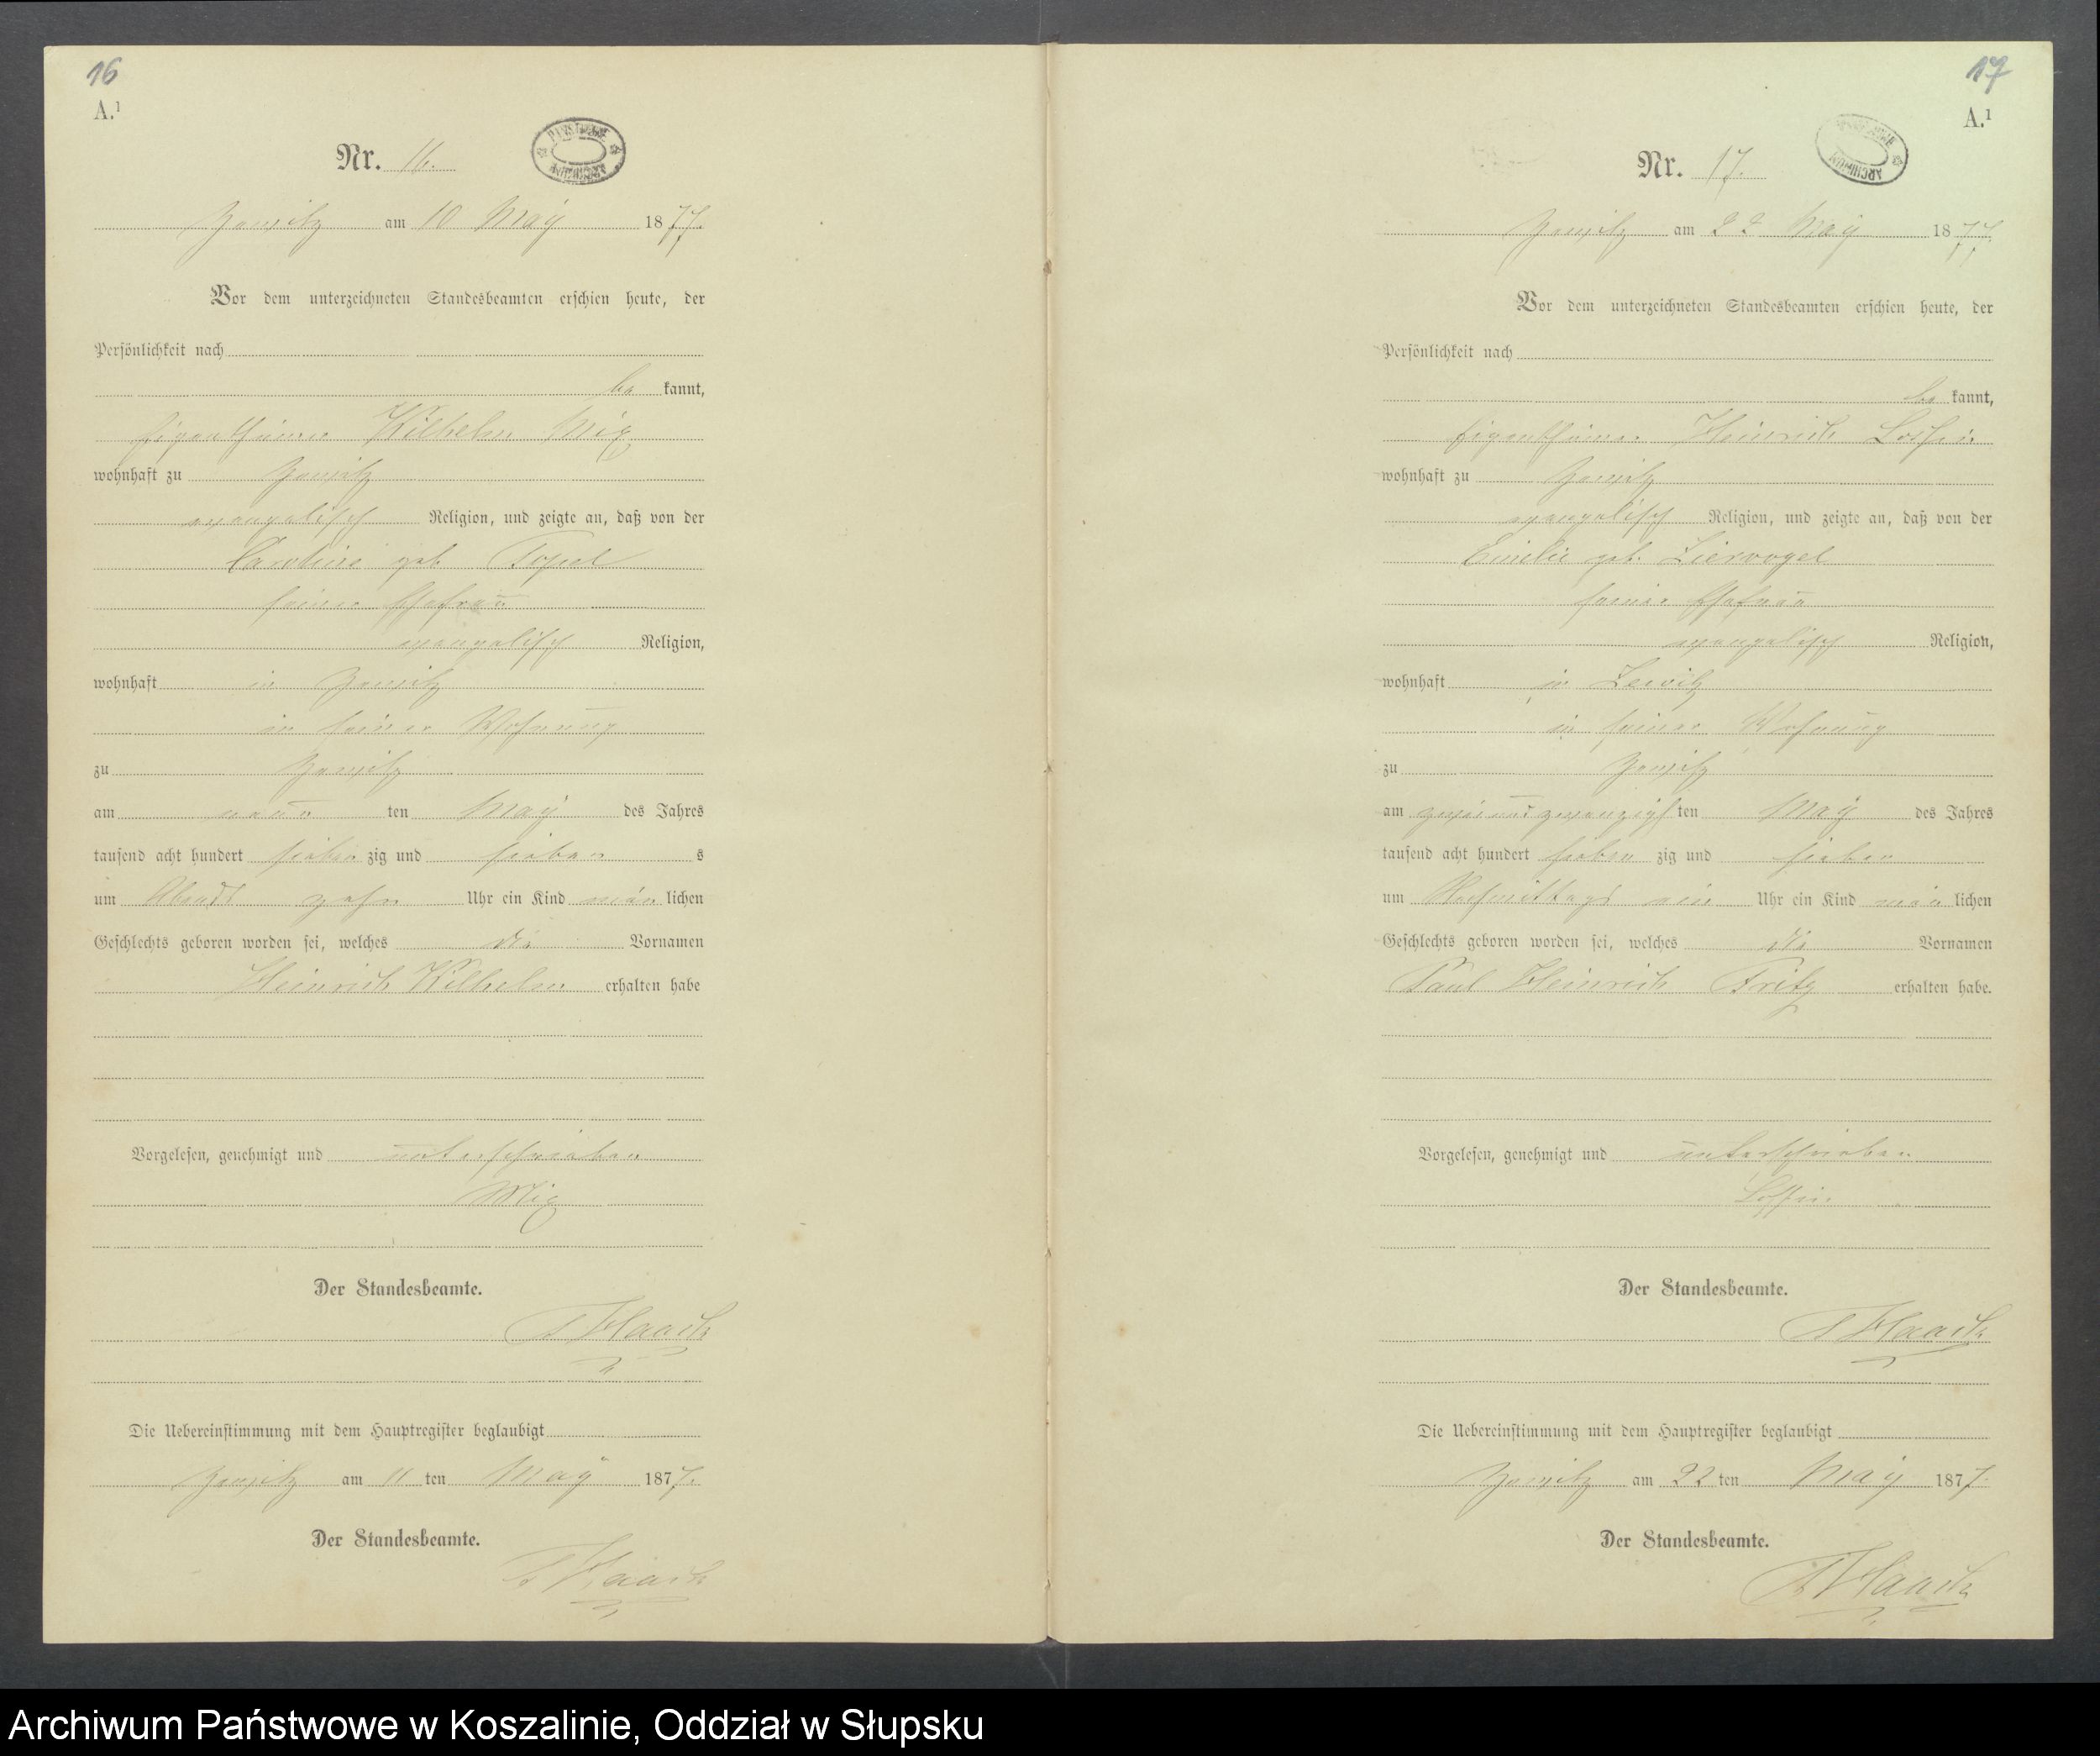 16
A.¹
Nr. 16.
PAŃSTWOWE ARCHIWUM
Zewitz am 10 May 1877.
Vor dem unterzeichneten Standesbeamten erschien heute, der
Persönlichkeit nach
be kannt,
Eigenthümer Wilhelm Mix
wohnhaft zu Zewitz
evangelisch Religion, und zeigte an, daß von der
Caroline geb. Topel
seiner Ehefrau
evangelisch Religion,
wohnhaft in Zewitz
in seiner Wohnung
zu Zewitz
am neun ten May des Jahres
tausend acht hundert sieben zig und sieben s
um Abends zehn Uhr ein Kind män lichen
Geschlechts geboren worden sei, welches die Vornamen
Heinrich Wilhelm erhalten habe
Vorgelesen, genehmigt und unterschrieben
Mix
Der Standesbeamte.
Haack
Die Uebereinstimmung mit dem Hauptregister beglaubigt
Zewitz am 11 ten May 1877.
Der Standesbeamte.
Haack
17
A.¹
Nr. 17.
ARCHIWUM
Zewitz am 22 May 1877.
Vor dem unterzeichneten Standesbeamten erschien heute, der
Persönlichkeit nach
be kannt,
Eigenthümer Heinrich Lossin
wohnhaft zu Zewitz
evangelisch Religion, und zeigte an, daß von der
Emilie geb. Ziervogel
seiner Ehefrau
evangelisch Religion,
wohnhaft in Zewitz
in seiner Wohnung
zu Zewitz
am zweiundzwanzigs ten May des Jahres
tausend acht hundert sieben zig und sieben
um Nachmittags ein Uhr ein Kind män lichen
Geschlechts geboren worden sei, welches die Vornamen
Paul Heinrich Fritz erhalten habe.
Vorgelesen, genehmigt und unterschrieben
Lossin
Der Standesbeamte.
Haack
Die Uebereinstimmung mit dem Hauptregister beglaubigt
Zewitz am 22 ten May 1877.
Der Standesbeamte.
Haack
Archiwum Państwowe w Koszalinie, Oddział w Słupsku